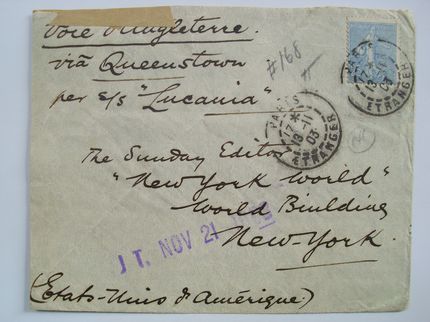 Voie d'Angleterre.
via Queenstown
per s/s "Lucania"
#168
PARIS
17
13-11
03
ETRANGER
PARIS
13
03
ETRANGER
The Sunday Editor
"New York World"
World Building
New-York.
J T. NOV 21
(Etats-Unis d'Amérique)